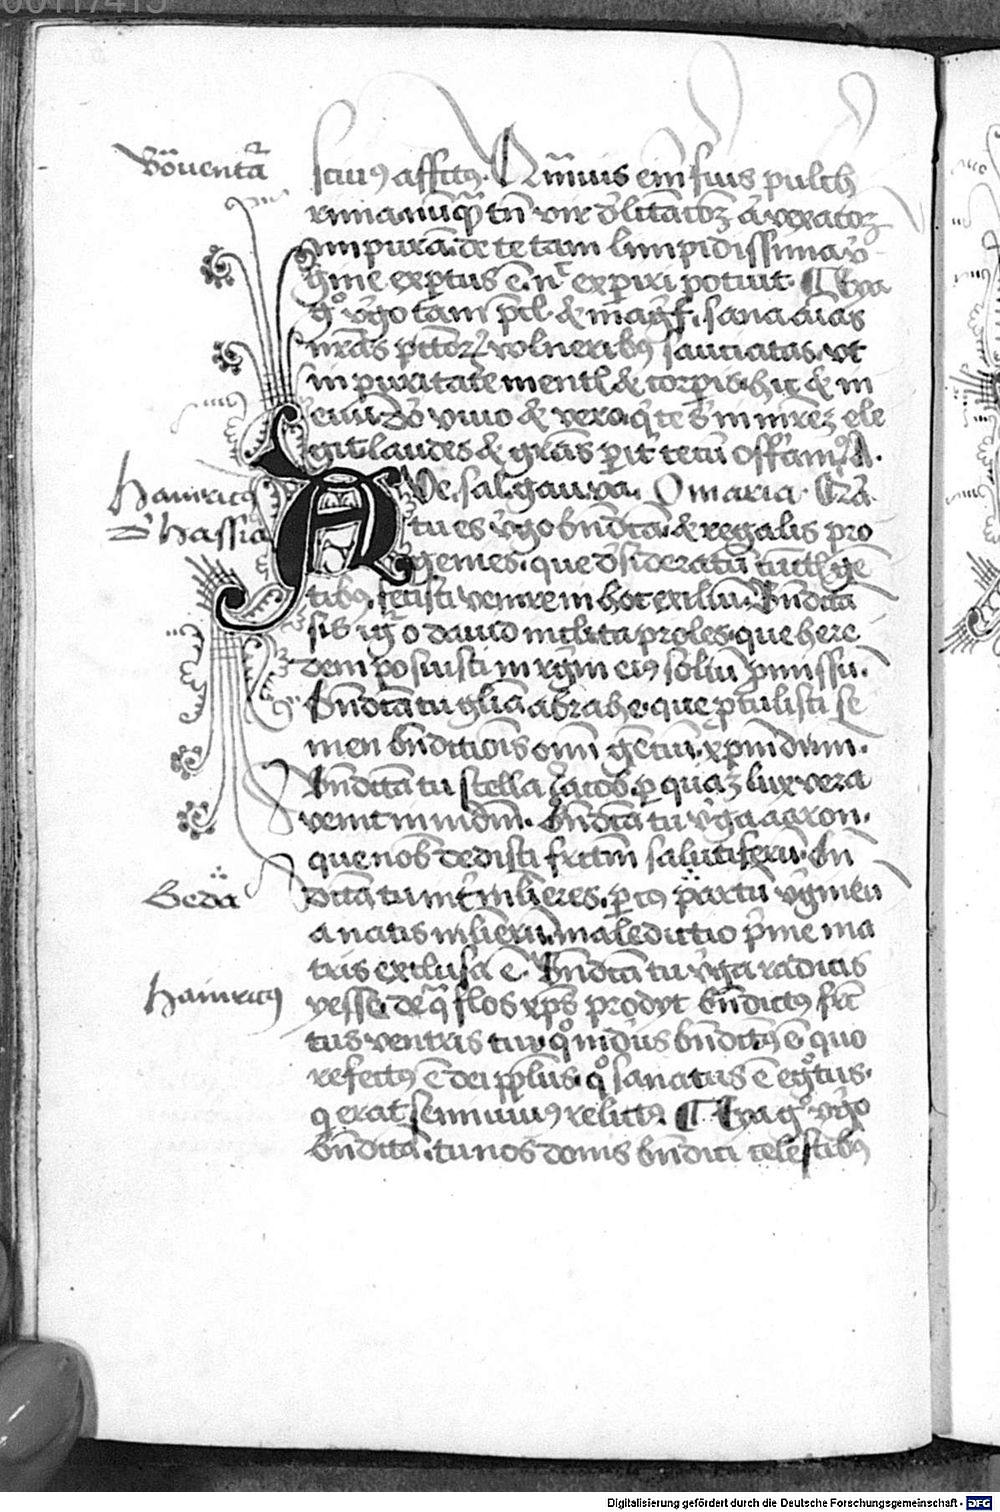 Bonventa
scius affectus. Quamuis enim fueris pulch
errima nunquam tamen
impuram. de te tam limpidissima vir
gine expertus est nec experiri potuit.
ergo virgo tam pulchra & magnifica sana animas
nostras peccatorum vulneribus sauciatas. vt
in puritate mentis & corporis hic & in
euum deo viuo & vero qui te sibi in matrem ele
git. laudes & gratias pariter tecum offeramus. A.
Hainricus de hassia
AVe. sal. gau. va. O maria. Gra.
tu es virgo benedicta. & regalis pro
genies. que desideratum cunctis gen
tibus. fecisti venire in hoc exilium. Benedicta
sis igitur o dauid inclita proles. que here
dem posuisti in regnum eius solium promissum.
Benedicta tu filia abrahe. que protulisti se
men benedictionis omnium gentium. xpm dominum.
Benedicta tu stella Jacob. per quam lux vera
venit in mundum. Benedicta tu virga aaron.
que nobis dedisti fructum salutiferum. Bene
Beda
dicta tu inter mulieres. per cuius partum virgineum
a natis mulierum. maledictio prime ma
tris exclusa est. Benedicta tu virga radicis
Hainricus
yesse. de qua flos xps prodyt benedictus fruc
tus ventris tui. quo mundus benedictus est quo
refectus est dei populus. quo sanatus est egrotus.
qui erat semiuiuus relictus. Eya ergo virgo
benedicta. tu nos donis benedici celestibus
Digitalisierung gefördert durch die Deutsche Forschungsgemeinschaft - DFG